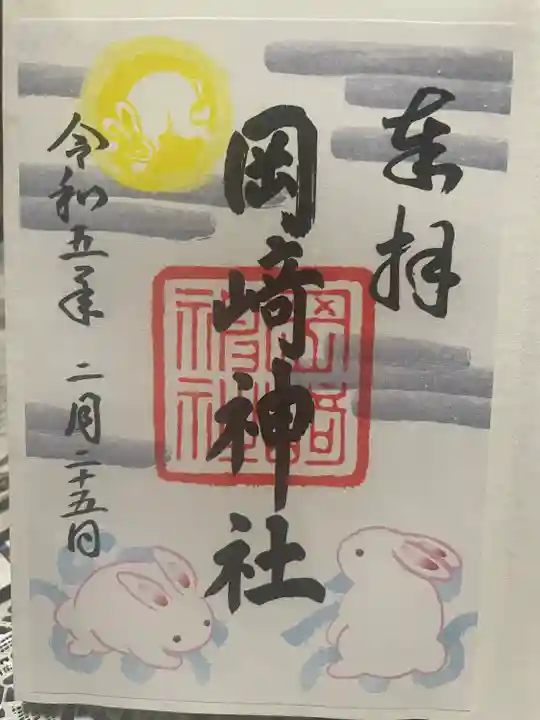 奉拝
岡﨑神社
岡﨑神社
令和五年 二月二十五日